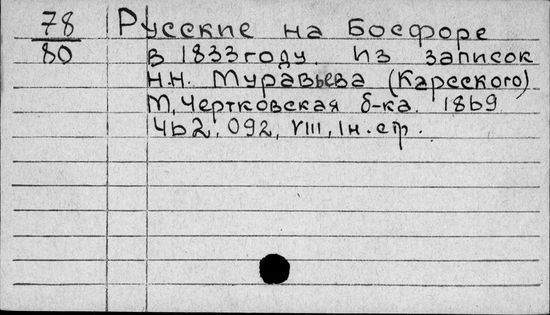 78 Русские на Босфоре
80 в 1833 году. Из записок
Н.Н. Муравьева (Карсского)
М, Чертковская б-ка. 1869
462, 092, VIII, 1н. стр.